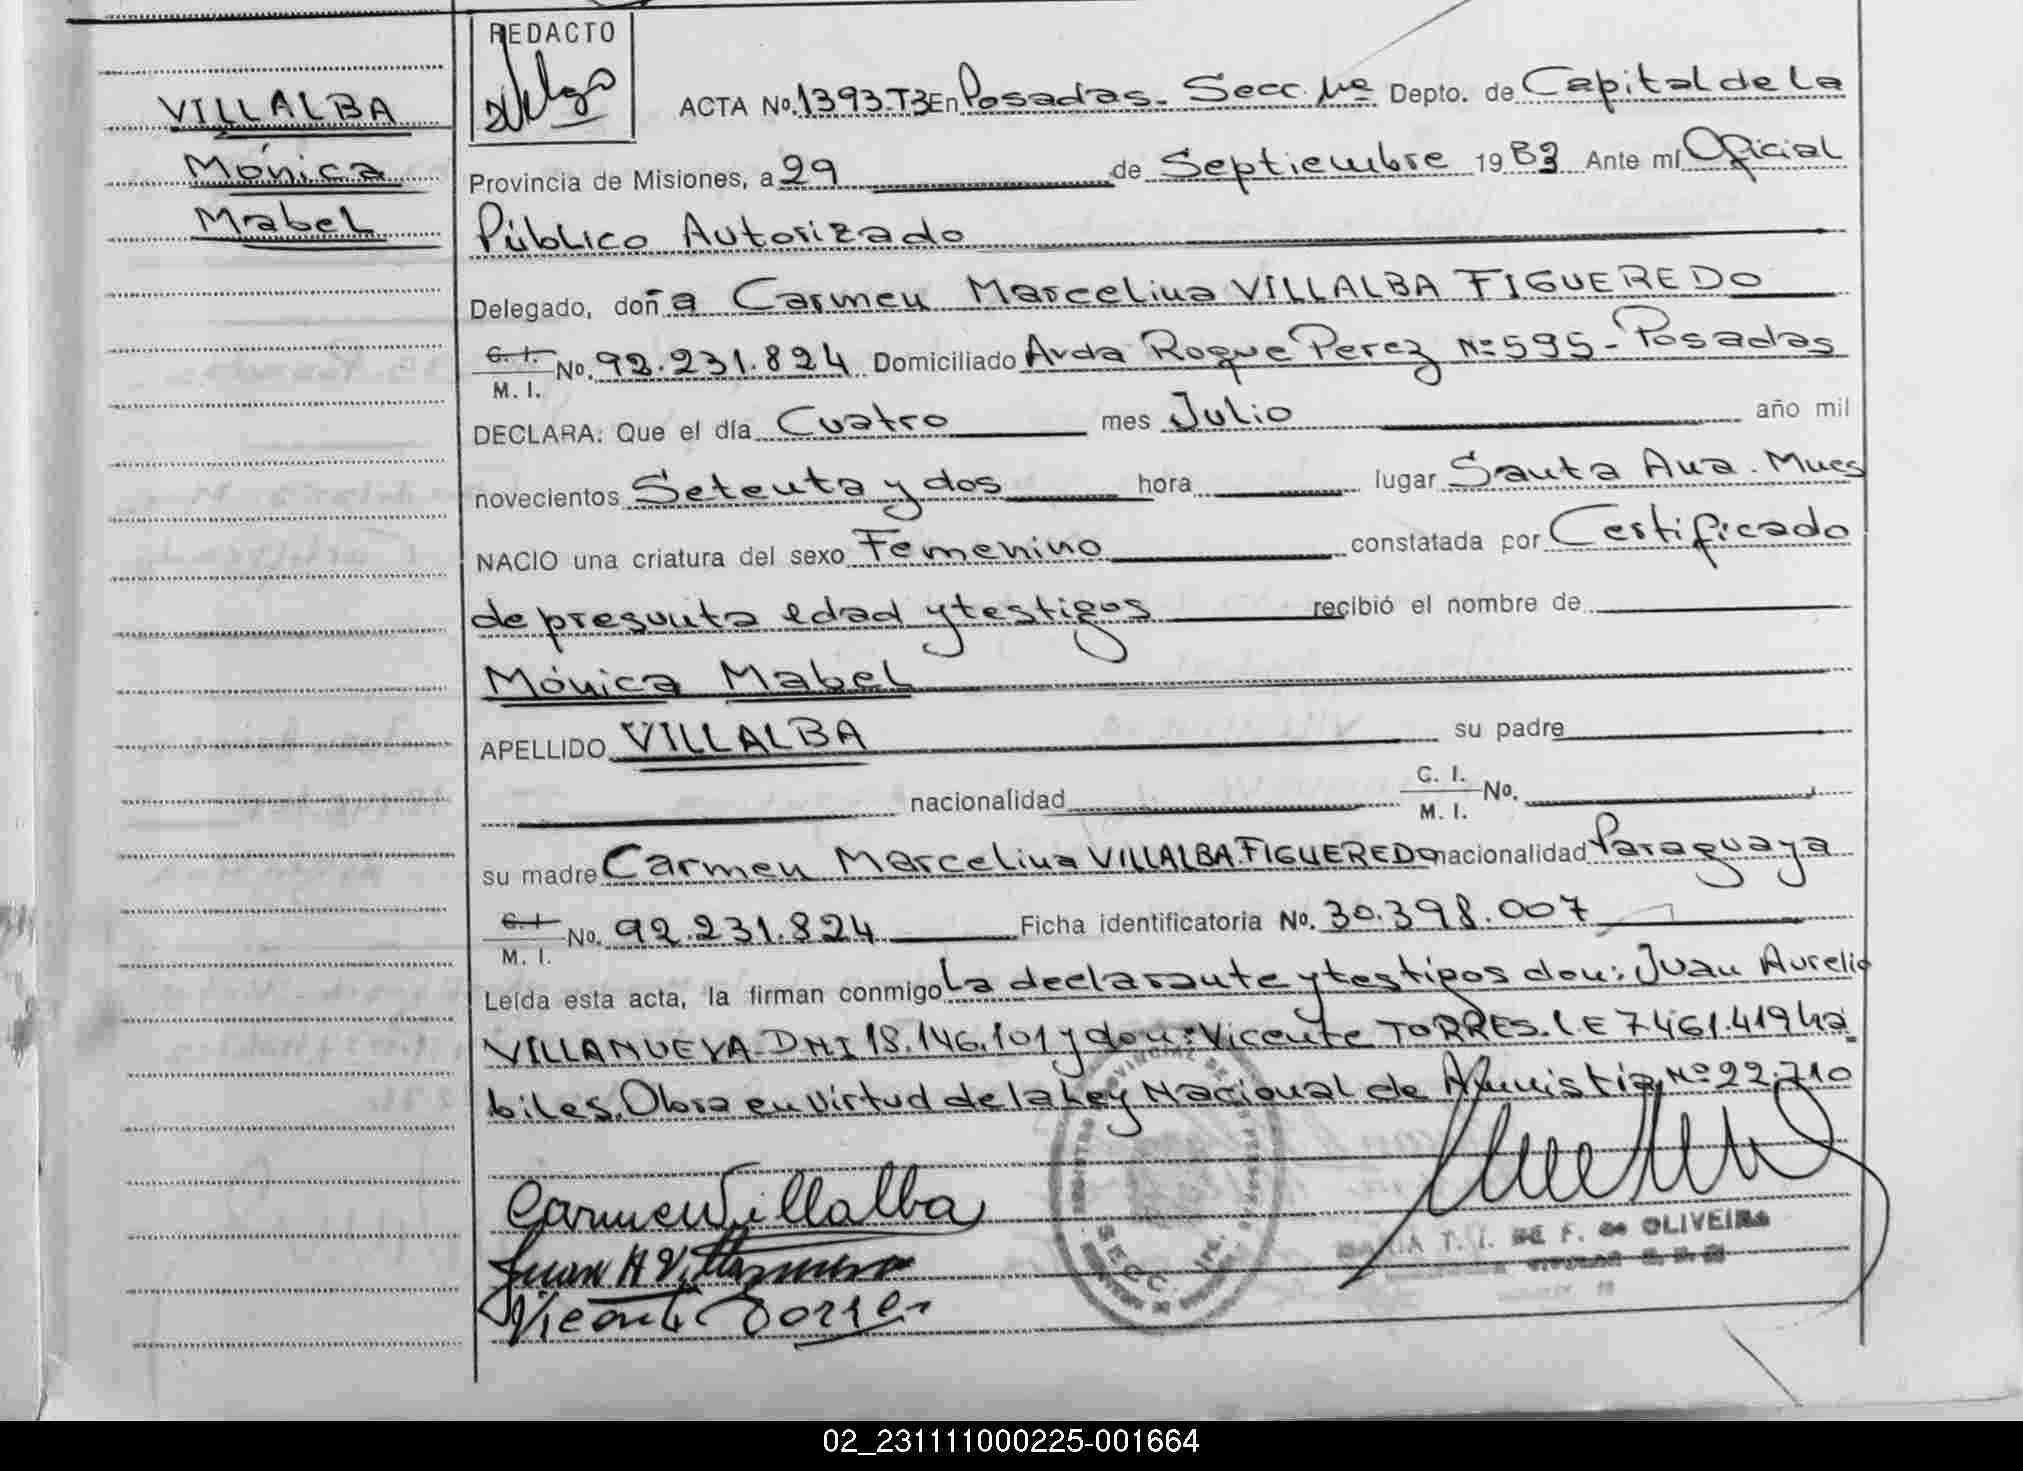 VILLALBA
Mónica
Mabel
REDACTO
ACTA No. 1393-T3 En Posadas. Secc. 1ra Depto. de Capital de La
Provincia de Misiones, a 29 de Septiembre 1983 Ante mí Oficial
Público Autorizado
Delegado, doña Carmen Marcelina VILLALBA FIGUEREDO
C. I. M. I. No. 92.231.824 Domiciliado Avda Roque Perez Nº 595 - Posadas
DECLARA: Que el día Cuatro mes Julio año mil
novecientos Setenta y dos hora lugar Santa Ana. Mnes
NACIO una criatura del sexo Femenino constatada por Certificado
de presunta edad y testigos recibió el nombre de
Mónica Mabel
APELLIDO VILLALBA su padre
nacionalidad C. I. M. I. No.
su madre Carmen Marcelina VILLALBA FIGUEREDO nacionalidad Paraguaya
C. I. M. I. No. 92.231.824 Ficha identificatoria No. 30.398.007
Leída esta acta, la firman conmigo La declarante y testigos don: Juan Aurelio
VILLANUEVA DNI 18.146.101 y don: Vicente TORRES. LE 7461.419 ha
biles. Obra en virtud de la Ley Nacional de Amnistia Nº 22.710
Carmen Villalba
Juan A Villanueva
Vicente Torres
SECC. 1ra.
MARIA T. I. DE F. de OLIVEIRA
02_231111000225-001664